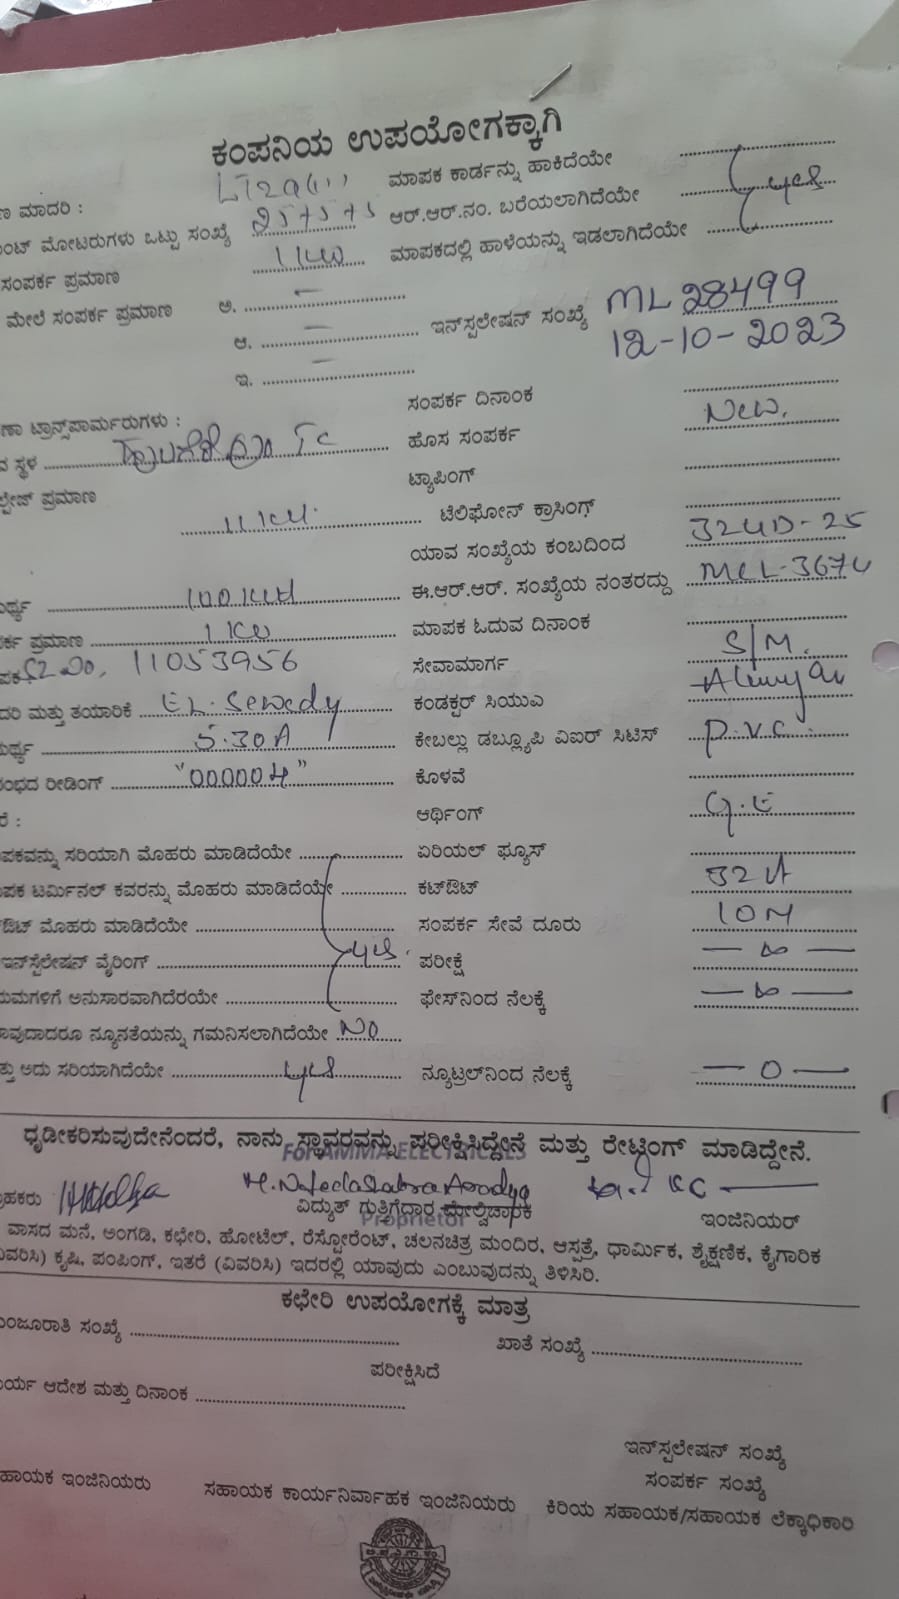 ಕಂಪನಿಯ ಉಪಯೋಗಕ್ಕಾಗಿ
ಣ ಮಾದರಿ : LT2a(i) ಮಾಪಕ ಕಾರ್ಡನ್ನು ಹಾಕಿದೆಯೇ
ಂಟ್ ಮೋಟರುಗಳು ಒಟ್ಟು ಸಂಖ್ಯೆ ಆರ್.ಆರ್.ನಂ. ಬರೆಯಲಾಗಿದೆಯೇ yes
ಸಂಪರ್ಕ ಪ್ರಮಾಣ 1 KW ಮಾಪಕದಲ್ಲಿ ಹಾಳೆಯನ್ನು ಇಡಲಾಗಿದೆಯೇ
ಮೇಲೆ ಸಂಪರ್ಕ ಪ್ರಮಾಣ ಅ. – ಇನ್‌ಸ್ಪಲೇಷನ್ ಸಂಖ್ಯೆ ML 28499
ಆ. – 12-10-2023
ಇ. –
ಸಂಪರ್ಕ ದಿನಾಂಕ
ಣಾ ಟ್ರಾನ್ಸ್‌ಪಾರ್ಮರುಗಳು :
ವ ಸ್ಥಳ TC ಹೊಸ ಸಂಪರ್ಕ New.
ಟ್ಯಾಪಿಂಗ್
ಲ್ಟೇಜ್ ಪ್ರಮಾಣ 11 KV. ಟೆಲಿಫೋನ್ ಕ್ರಾಸಿಂಗ್
ಯಾವ ಸಂಖ್ಯೆಯ ಕಂಬದಿಂದ
ರ್ಥ್ಯ 100 KVA ಈ.ಆರ್.ಆರ್. ಸಂಖ್ಯೆಯ ನಂತರದ್ದು
ರ್ಕ ಪ್ರಮಾಣ 1 KW ಮಾಪಕ ಓದುವ ದಿನಾಂಕ
ಪಕ 11053956 ಸೇವಾಮಾರ್ಗ S/M.
ದರಿ ಮತ್ತು ತಯಾರಿಕೆ EL.Sewedy ಕಂಡಕ್ಟರ್ ಸಿಯುಎ
ರ್ಥ್ಯ 5-30A ಕೇಬಲ್ಲು ಡಬ್ಲ್ಯೂಪಿ ವಿಐಆರ್ ಸಿಟಿಸ್ P.V.C.
ಂಭದ ರೀಡಿಂಗ್ "000004" ಕೊಳವೆ
ರೆ : ಆರ್ಥಿಂಗ್ G.E
ಪಕವನ್ನು ಸರಿಯಾಗಿ ಮೊಹರು ಮಾಡಿದೆಯೇ ಏರಿಯಲ್ ಫ್ಯೂಸ್
ಪಕ ಟರ್ಮಿನಲ್ ಕವರನ್ನು ಮೊಹರು ಮಾಡಿದೆಯೇ ಕಟ್‌ಔಟ್ 32 A
ಔಟ್ ಮೊಹರು ಮಾಡಿದೆಯೇ ಸಂಪರ್ಕ ಸೇವೆ ದೂರು 10 M
ಇನ್‌ಸ್ಟೆಲೇಷನ್ ವೈರಿಂಗ್ yes. ಪರೀಕ್ಷೆ
ಯಮಗಳಿಗೆ ಅನುಸಾರವಾಗಿದೆರಯೇ ಫೇಸ್‌ನಿಂದ ನೆಲಕ್ಕೆ
ಾವುದಾದರೂ ನ್ಯೂನತೆಯನ್ನು ಗಮನಿಸಲಾಗಿದೆಯೇ NO
ತ್ತು ಅದು ಸರಿಯಾಗಿದೆಯೇ yes ನ್ಯೂಟ್ರಲ್‌ನಿಂದ ನೆಲಕ್ಕೆ — 0 —
ಧೃಡೀಕರಿಸುವುದೇನೆಂದರೆ, ನಾನು ಸ್ಥಾವರವನ್ನು ಪರೀಕ್ಷಿಸಿದ್ದೇನೆ ಮತ್ತು ರೇಟ್ಟಿಂಗ್ ಮಾಡಿದ್ದೇನೆ.
For AMMA ELECTRICALS
ಾಹಕರು ವಿದ್ಯುತ್ ಗುತ್ತಿಗೆದಾರ ಮೇಲ್ವಿಚಾರಕ ಇಂಜಿನಿಯರ್
Proprietor
ವಾಸದ ಮನೆ, ಅಂಗಡಿ, ಕಛೇರಿ, ಹೋಟೆಲ್, ರೆಸ್ಟೋರೆಂಟ್, ಚಲನಚಿತ್ರ ಮಂದಿರ, ಆಸ್ಪತ್ರೆ, ಧಾರ್ಮಿಕ, ಶೈಕ್ಷಣಿಕ, ಕೈಗಾರಿಕ
ವಿವರಿಸಿ) ಕೃಷಿ, ಪಂಪಿಂಗ್, ಇತರೆ (ವಿವರಿಸಿ) ಇದರಲ್ಲಿ ಯಾವುದು ಎಂಬುವುದನ್ನು ತಿಳಿಸಿರಿ.
ಕಛೇರಿ ಉಪಯೋಗಕ್ಕೆ ಮಾತ್ರ
ಂಜೂರಾತಿ ಸಂಖ್ಯೆ ಖಾತೆ ಸಂಖ್ಯೆ
ಪರೀಕ್ಷಿಸಿದೆ
ರ್ಯ ಆದೇಶ ಮತ್ತು ದಿನಾಂಕ
ಇನ್‌ಸ್ಪಲೇಷನ್ ಸಂಖ್ಯೆ
ಸಂಪರ್ಕ ಸಂಖ್ಯೆ
ಹಾಯಕ ಇಂಜಿನಿಯರು ಸಹಾಯಕ ಕಾರ್ಯನಿರ್ವಾಹಕ ಇಂಜಿನಿಯರು ಕಿರಿಯ ಸಹಾಯಕ/ಸಹಾಯಕ ಲೆಕ್ಕಾಧಿಕಾರಿ